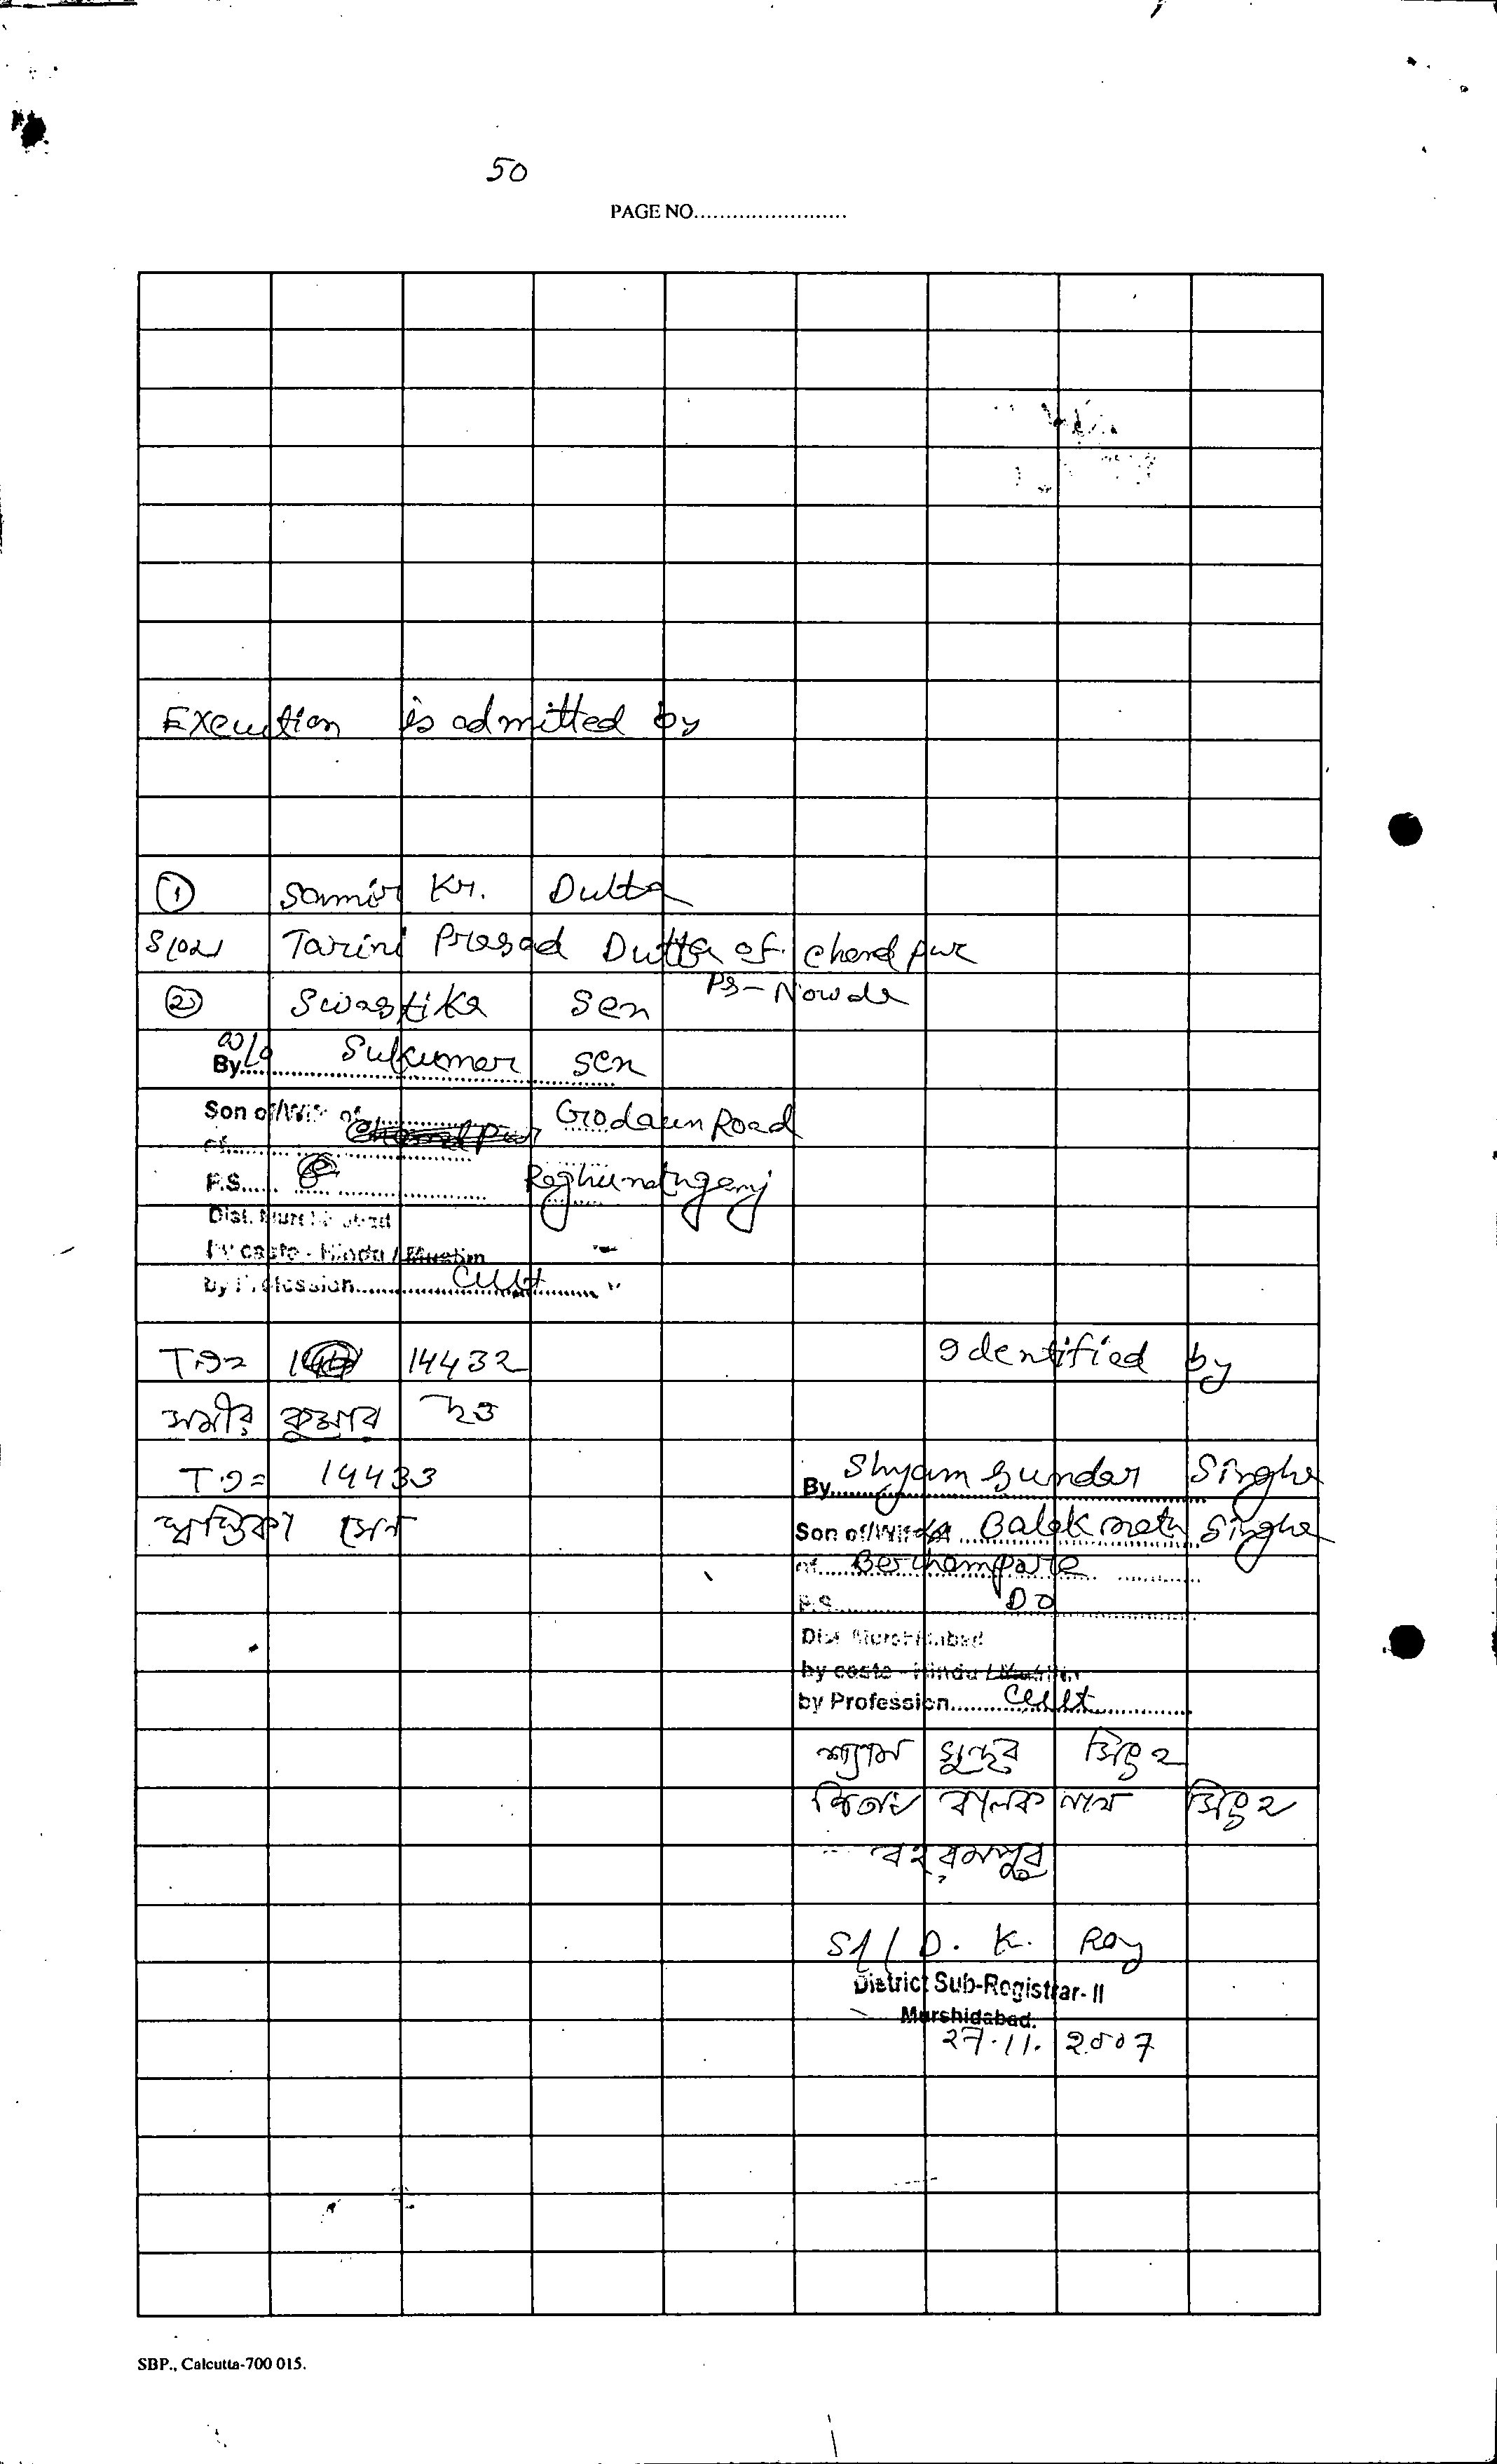 50
PAGE NO........................
Execution is admitted by
① Samir Kr. Dutta
S/o Tarini Prasad Dutta of Chandpur
PS- Nowda
② Swastika Sen
W/o
By Sukumar Sen
Son of/Wife of
Godaun Road
of
P.S. Raghunathganj
Dist. Murshidabad
by caste - Hindu / Muslim
by Profession Cult
T.I= 14432
সমীর কুমার দত্ত
T.I= 14433
স্বস্তিকা সেন
Identified by
By Shyam Sundar Singha
Son of/Wife of Balak nath Singha
of Berhampore
P.S. Do
Dist. Murshidabad
by caste - Hindu / Muslim
by Profession Cult
শ্যাম সুন্দর সিংহ
পিতা বালক নাথ সিংহ
বহরমপুর
Sd/ D. K. Roy
District Sub-Registrar- II
Murshidabad.
27.11.2007
SBP., Calcutta-700 015.